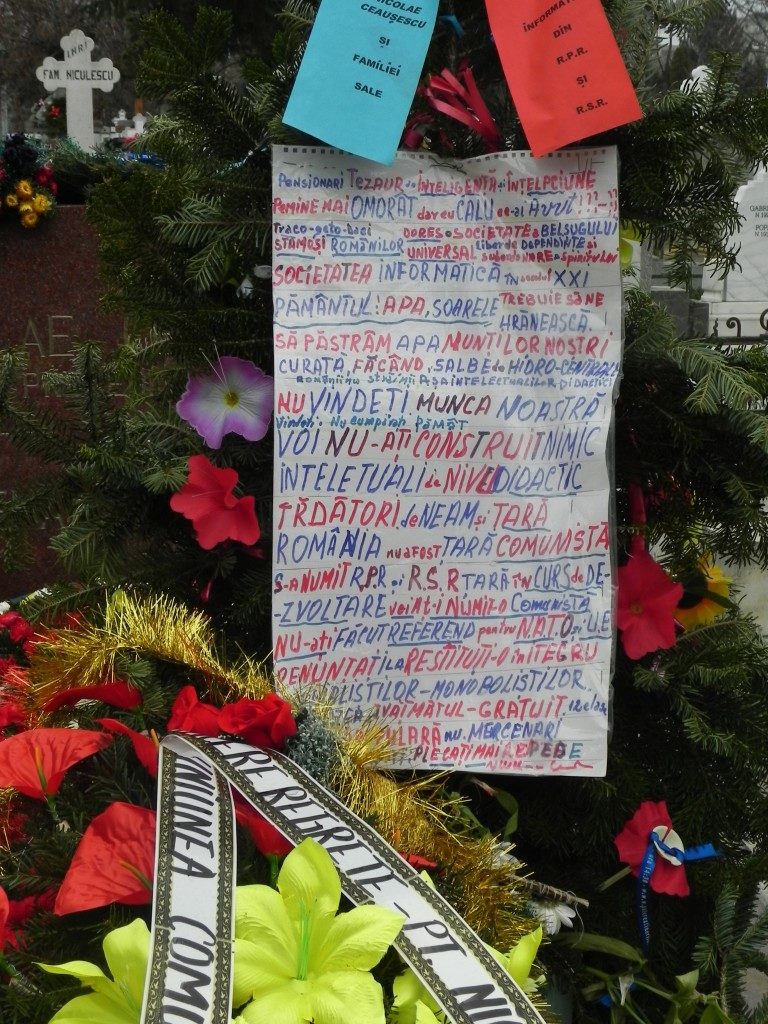 NICOLAE
CEAUȘESCU
ȘI
FAMILIEI
SALE
INFORMAT
DIN
R.P.R.
ȘI
R.S.R.
INRI
FAM. NICULESCU
PENSIONARI TEZAUR de INTELIGENȚĂ și INTELPCIUNE
PE MINE M-AI OMORÂT dar eu CALU ce-ai Avut!???
Traco-geto-daci DORES o SOCIETATE a BELSUGULUI
STĂMOȘI ROMÂNILOR UNIVERSAL liber de DEPENDINTE și
SOCIETATEA INFORMATICĂ în secolul XXI
PĂMÂNTUL: APA, SOARELE TREBUIE SĂ NE
HRĂNEASCĂ!
SĂ PĂSTRĂM APA MUNȚILOR NOSTRI
CURATĂ, FĂCÂND, SALBE de HIDRO-CENTRALE
NU VINDEȚI MUNCA NOASTRĂ!
Vindeti. Nu cumpărati PĂMÂT
VOI NU-AȚI CONSTRUIT NIMIC
INTELETUALI de NIVEL DIDACTIC
TRDĂTORI de NEAM și ȚARĂ
ROMÂNIA nu a FOST ȚARĂ COMUNISTĂ
S-a NUMIT R.P.R și R.S.R ȚARĂ în CURS de DE-
-ZVOLTARE voi AȚ-i NUMIT-O COMUNISTĂ
NU-ați FĂCUT REFEREND pentru N.A.T.O. și U.E
RESTITUȚI-O în ITEGRU
MONOPOLISTILOR.
GRATUIT 12 clase
nu. MERCENARI
PLECAȚI MAI REPEDE
ERE REGRETE - PT. NIC
UNIUNEA COMU
AE
GABRI